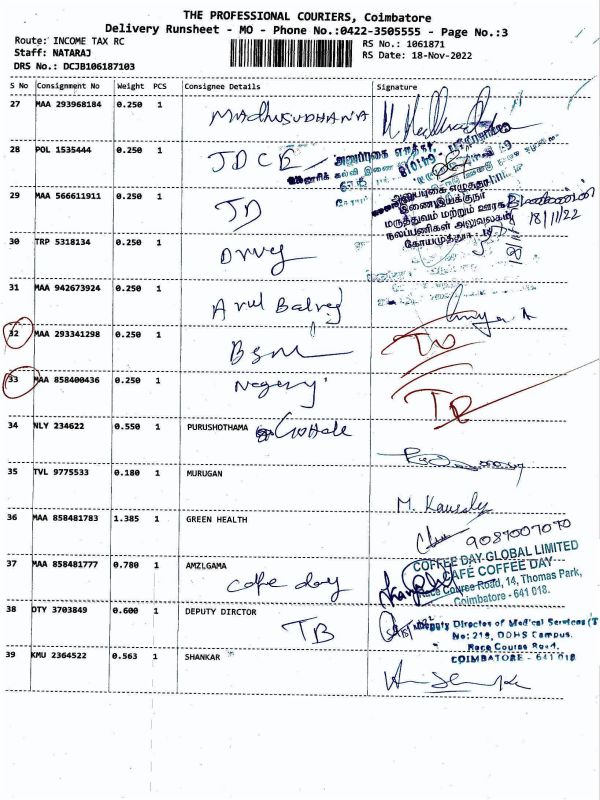 THE PROFESSIONAL COURIERS, Coimbatore
Delivery Runsheet - MO - Phone No.:0422-3505555 - Page No.:3
Route: INCOME TAX RC
RS No.: 1061871
Staff: NATARAJ
RS Date: 18-Nov-2022
DRS No.: DCJB106187103
S No Consignment No Weight PCS Consignee Details Signature
27 MAA 293968184 0.250 1 MADHUSUDHANA
28 POL 1535444 0.250 1 JDCE
29 MAA 566611911 0.250 1 JD
அனுப்புகை எழுத்தர்
இணை இயக்குநர்
மருத்துவம் மற்றும் ஊரக
நலப்பணிகள் அலுவலகம்
கோயமுத்தூர் - 18
18/11/22
30 TRP 5318134 0.250 1
31 MAA 942673924 0.250 1 Arul Balraj
32 MAA 293341298 0.250 1 BSNL
33 MAA 858400436 0.250 1
34 NLY 234622 0.550 1 PURUSHOTHAMA
35 TVL 9775533 0.180 1 MURUGAN
M. Kausaly
36 MAA 858481783 1.385 1 GREEN HEALTH
9087007070
37 MAA 858481777 0.780 1 AMZLGAMA
cafe day
COFFEE DAY GLOBAL LIMITED
CAFÉ COFFEE DAY
Race Course Road, 14, Thomas Park,
Coimbatore - 641 018.
38 DTY 3703849 0.600 1 DEPUTY DIRCTOR
TB
Deputy Director of Medical Services (T
No: 219, DDHS Campus.
Race Course Road.
COIMBATORE - 641 018
39 KMU 2364522 0.563 1 SHANKAR